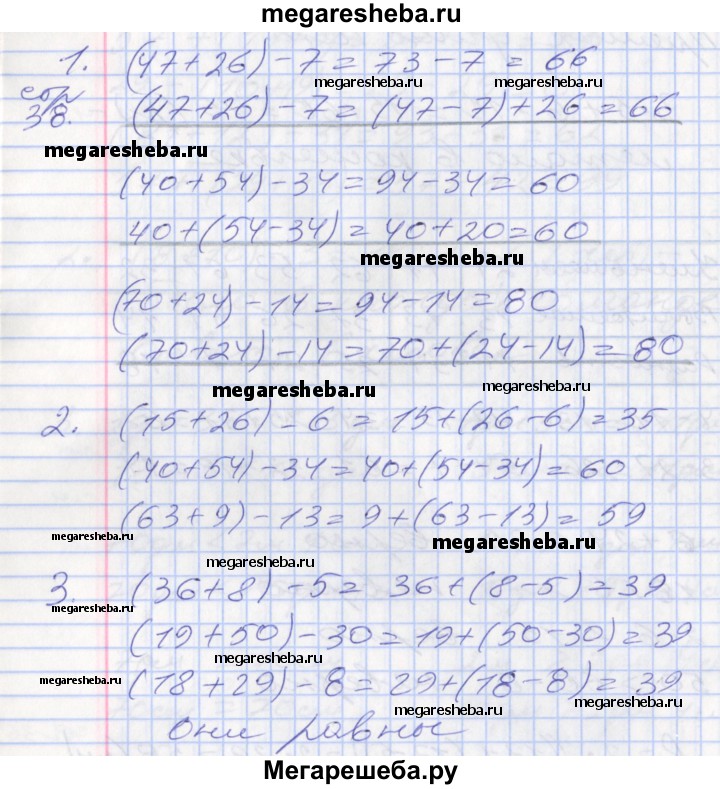 megaresheba.ru
1. (47+26)-7=73-7=66
megaresheba.ru megaresheba.ru
стр 38. (47+26)-7=(47-7)+26=66
megaresheba.ru
(40+54)-34=94-34=60
40+(54-34)=40+20=60
megaresheba.ru
(70+24)-14=94-14=80
(70+24)-14=70+(24-14)=80
megaresheba.ru megaresheba.ru
2. (15+26)-6=15+(26-6)=35
(40+54)-34=40+(54-34)=60
(63+9)-13=9+(63-13)=59
megaresheba.ru megaresheba.ru
megaresheba.ru
3. (36+8)-5=36+(8-5)=39
megaresheba.ru
(19+50)-30=19+(50-30)=39
megaresheba.ru
(18+29)-8=29+(18-8)=39
megaresheba.ru megaresheba.ru
они равны
megaresheba.ru
Мегарешеба.ру